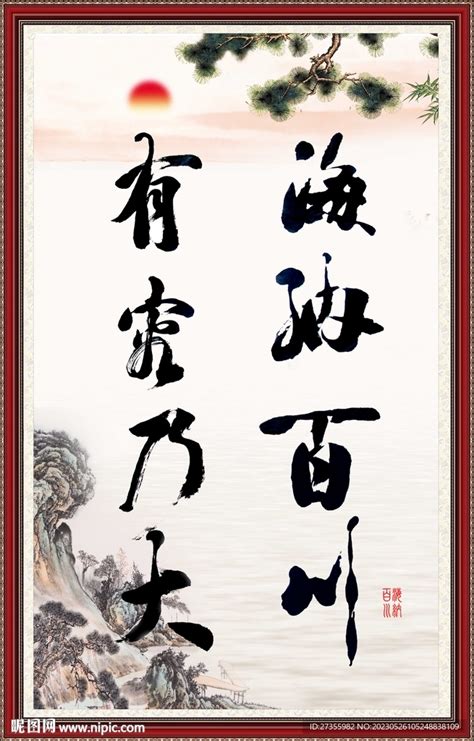 海纳百川
有容乃大
海纳
百川
昵图网
www.nipic.com
ID:27355982 NO:20230526105248838109